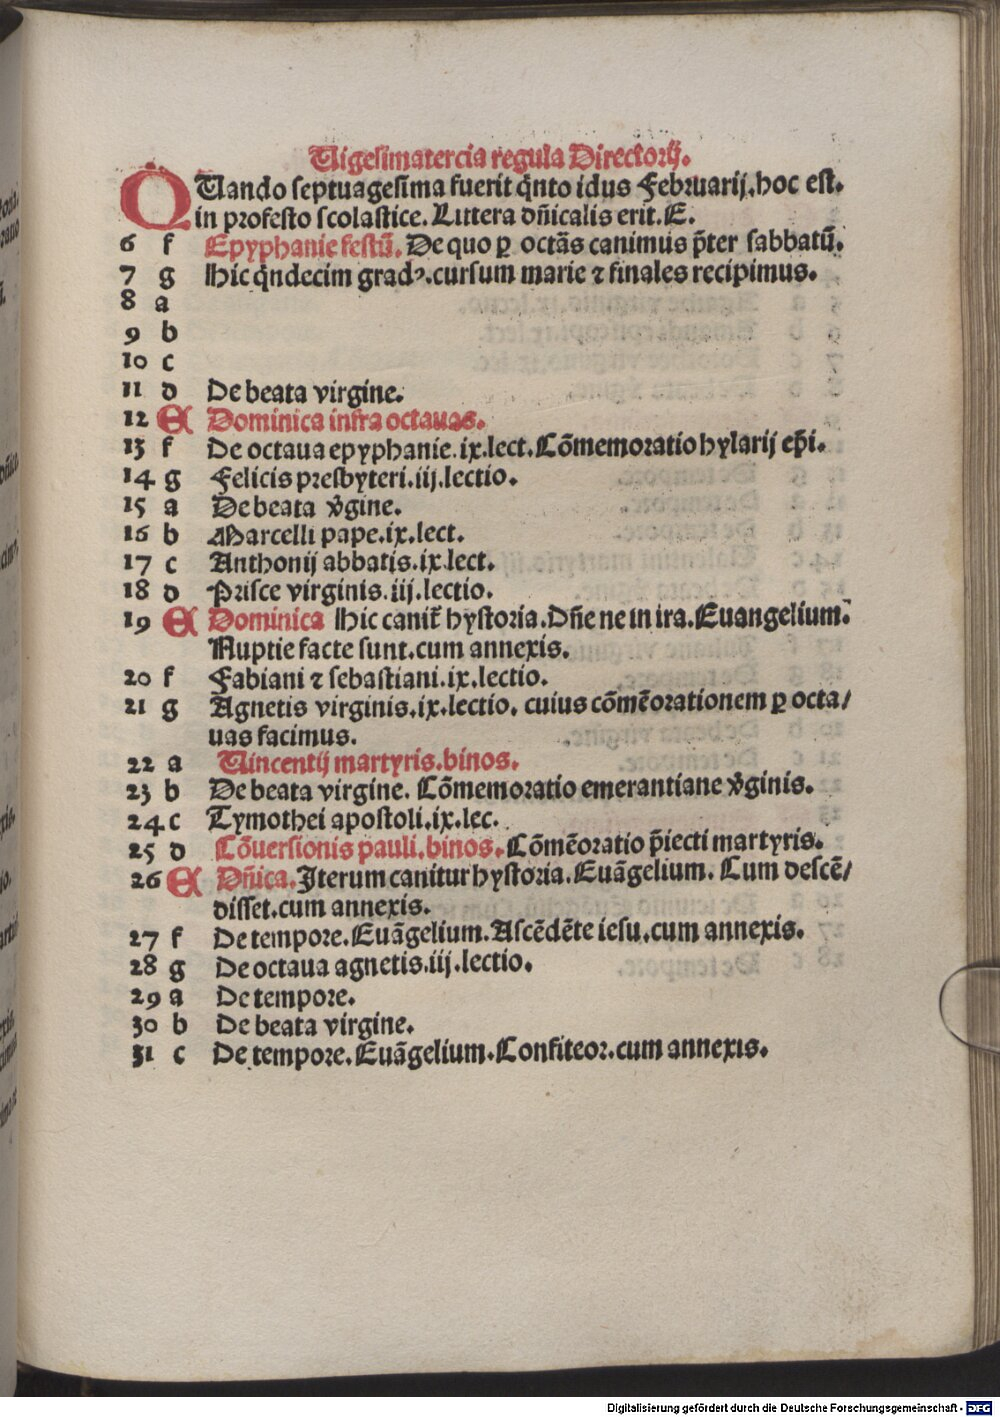 Uigesimatercia regula Directorij.
QUando septuagesima fuerit q̄nto idus Februarij.hoc est.
in profesto scolastice. Littera dn̄icalis erit. E.
6 f Epyphanie festū. De quo ꝑ octās canimus p̄ter sabbatū.
7 g Hic q̄ndecim gradꝰ.cursum marie ⁊ finales recipimus.
8 a
9 b
10 c
11 d De beata virgine.
12 E Dominica infra octauas.
13 f De octaua epyphanie.ix.lect.Cōmemoratio hylarij ep̄i.
14 g Felicis presbyteri.iij.lectio.
15 a De beata v̄gine.
16 b Marcelli pape.ix.lect.
17 c Anthonij abbatis.ix.lect.
18 d Prisce virginis.iij.lectio.
19 E Dominica Hic canit̄ hystoria.Dn̄e ne in ira.Euangelium.
Nuptie facte sunt.cum annexis.
20 f Fabiani ⁊ sebastiani.ix.lectio.
21 g Agnetis virginis.ix.lectio. cuius cōmēorationem ꝑ octa/
uas facimus.
22 a Uincentij martyris.binos.
23 b De beata virgine. Cōmemoratio emerantiane v̄ginis.
24 c Tymothei apostoli.ix.lec.
25 d Cōuersionis pauli.binos.Cōmēoratio p̄iecti martyris.
26 E Dn̄ica.Iterum canitur hystoria.Euāgelium. Cum descē/
disset.cum annexis.
27 f De tempore.Euāgelium.Ascēdēte iesu.cum annexis.
28 g De octaua agnetis.iij.lectio.
29 a De tempore.
30 b De beata virgine.
31 c De tempore.Euāgelium.Confiteor.cum annexis.
Digitalisierung gefördert durch die Deutsche Forschungsgemeinschaft - DFG